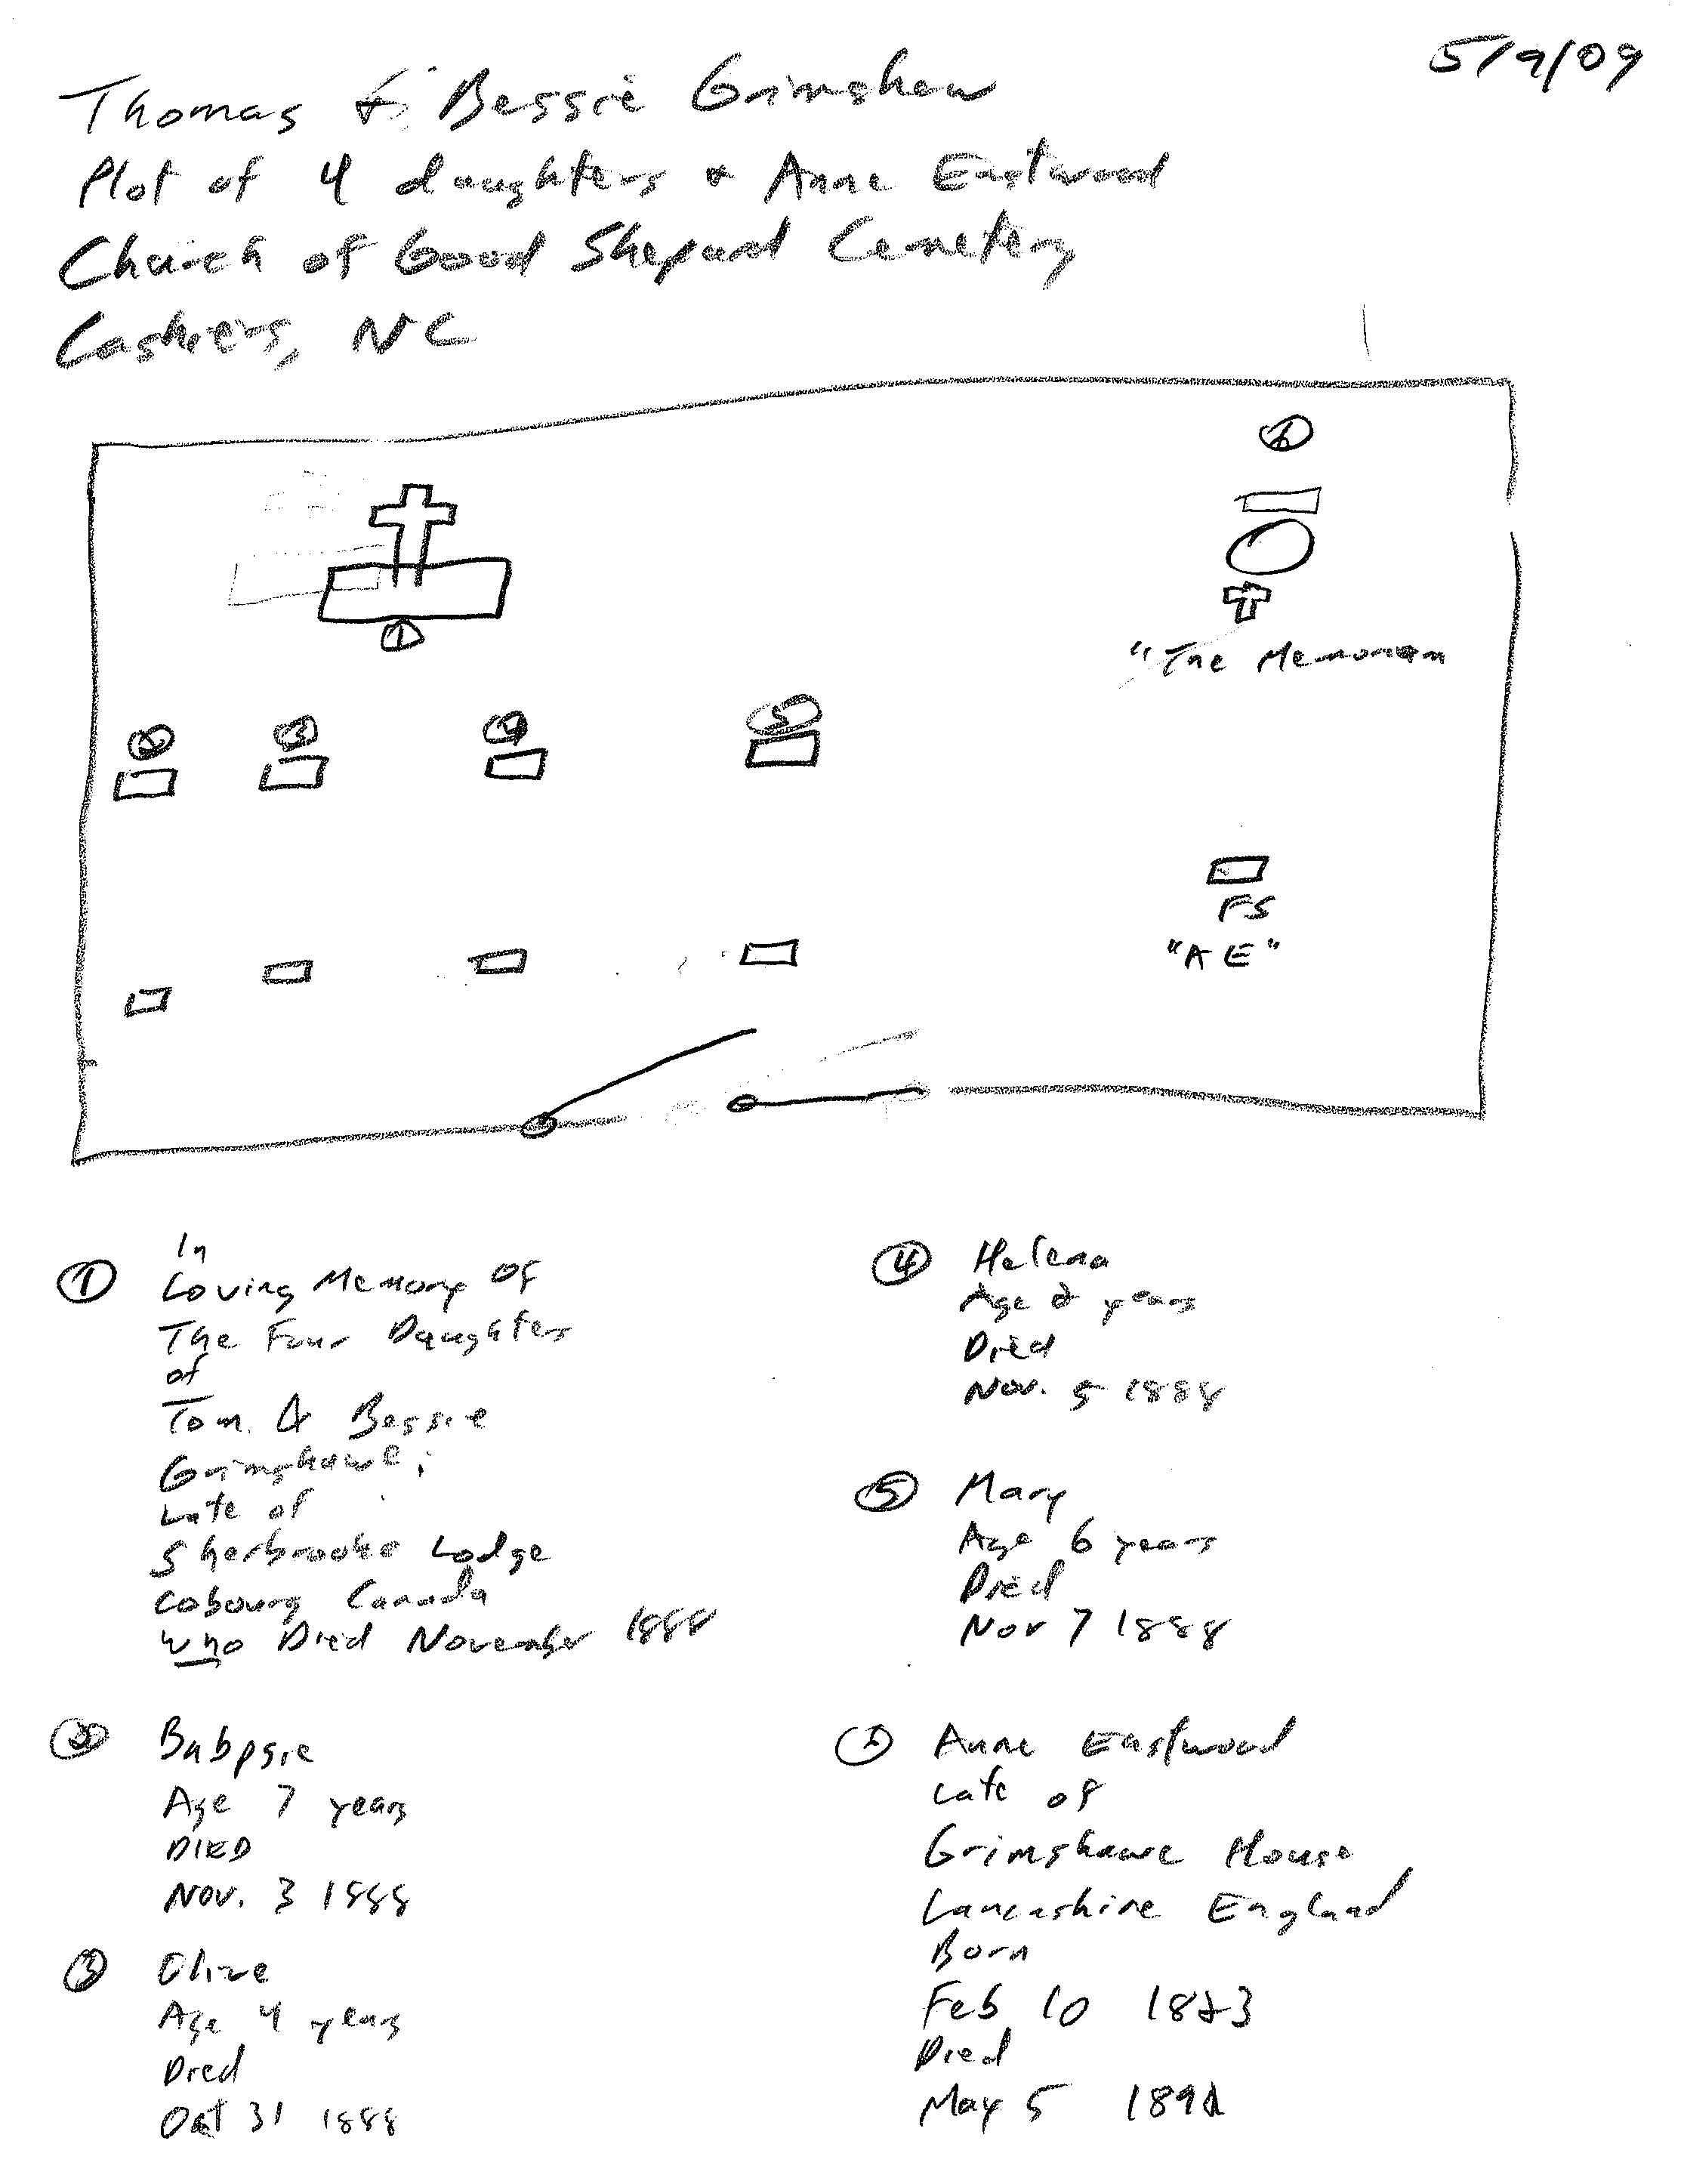 5/9/09
Thomas & Bessie Grimshaw
Plot of 4 daughters & Anne Eastwood
Church of Good Shepard Cemetery
Cashiers, NC
6
1
"The Memoriam
2 3 4 5
FS
"AE"
1 In
Loving Memory of
The Four Daughters
of
Tom & Bessie
Grimshawe;
Late of
Sherbrooke Lodge
Cobourg Canada
who Died November 1888
2 Babpsie
Age 7 years
DIED
Nov. 3 1888
3 Olive
Age 4 years
Died
Oct 31 1888
4 Helena
Age 2 years
Died
Nov. 5 1888
5 Mary
Age 6 years
Died
Nov 7 1888
6 Anne Eastwood
Late of
Grimshawe House
Lancashire England
Born
Feb 10
Died
May 5